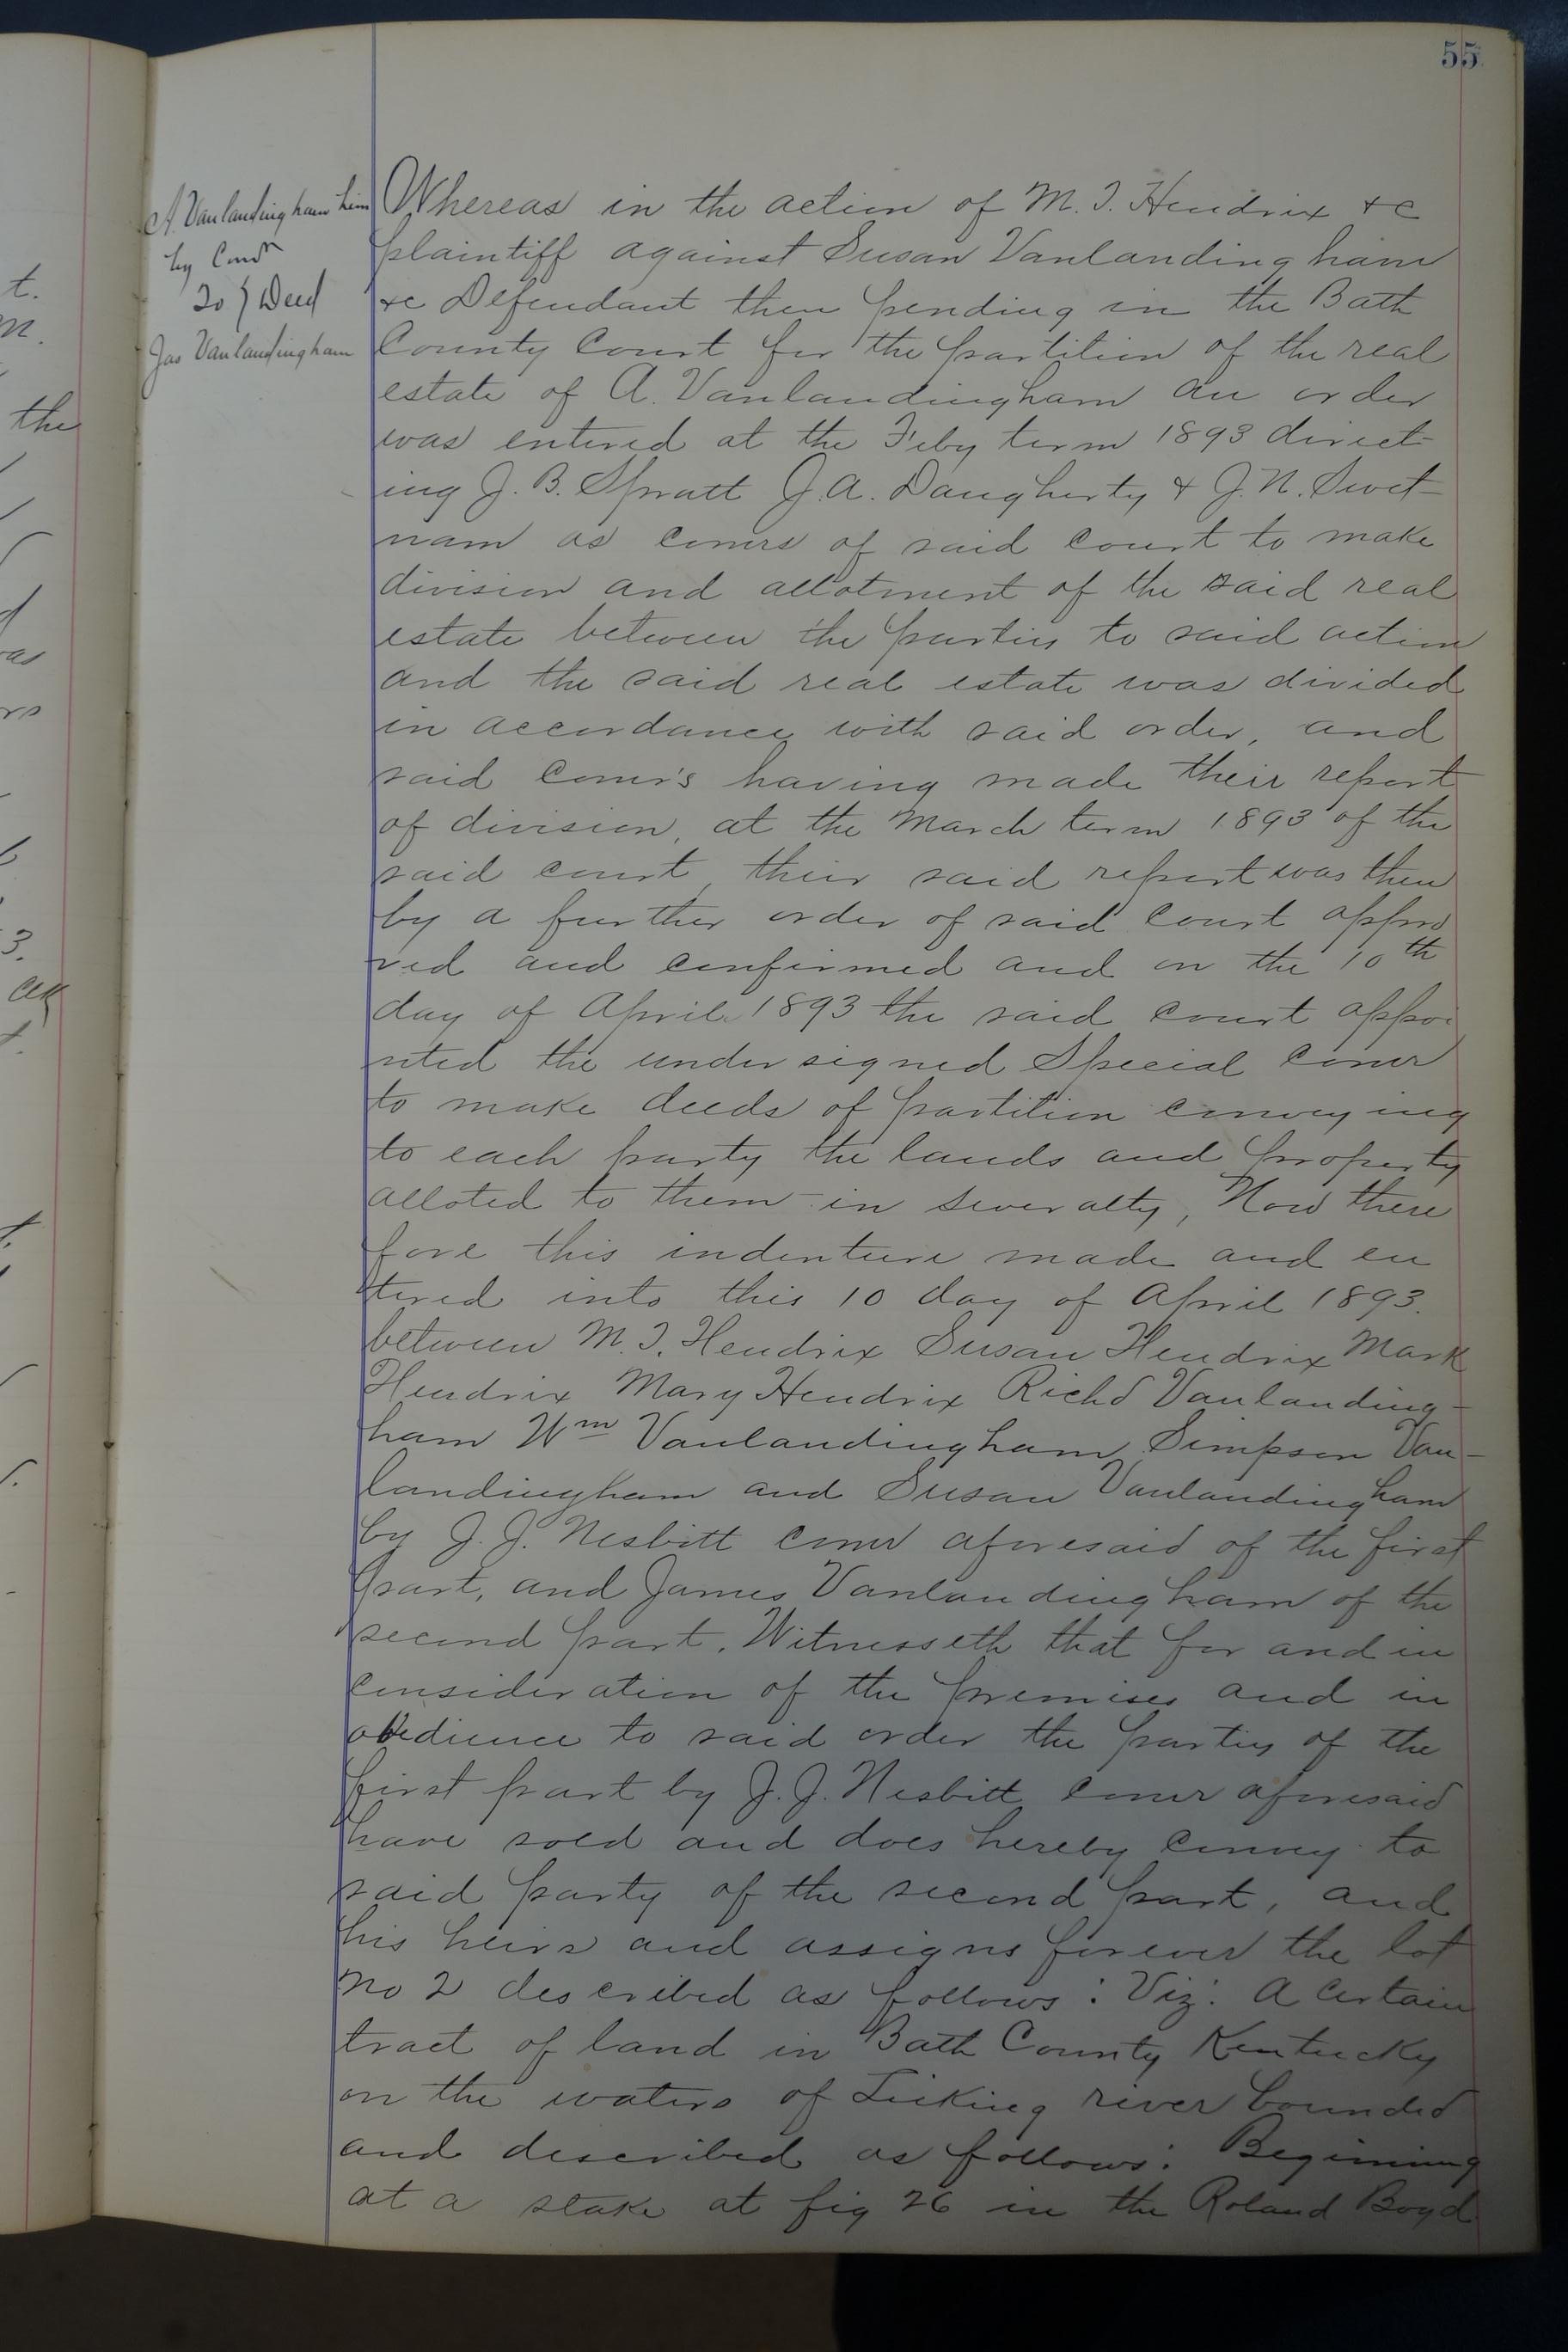 55
A. Vanlandingham
by Comr
To } Deed
Jas Vanlandingham
Whereas in the action of M. T. Hendrix &c
plaintiff against Susan Vanlandingham
&c Defendant then pending in the Bath
County Court for the partition of the real
estate of A. Vanlandingham an order
was entered at the Feby term 1893 direct-
ing J. B. Spratt J. A. Daugherty & J. N. Swet-
nam as comrs of said court to make
division and allotment of the said real
estate between the parties to said action
and the said real estate was divided
in accordance with said order, and
said comr's having made their report
of division, at the March term 1893 of the
said court, their said report was then
by a further order of said court appro
ved and confirmed and on the 10th
day of April 1893 the said court appoi
nted the undersigned Special comr
to make deeds of partition conveying
to each party the lands and property
alloted to them in severalty, Now there
fore this indenture made and en
tered into this 10 day of April 1893.
between M. T. Hendrix Susan Hendrix Mark
Hendrix Mary Hendrix Richd Vanlanding-
ham Wm Vanlandingham Simpson Van-
landingham and Susan Vanlandingham
by J. J. Nesbitt comr aforesaid of the first
part, and James Vanlandingham of the
second part, Witnesseth that for and in
consideration of the premises and in
obedience to said order the parties of the
first part by J. J. Nesbitt comr aforesaid
have sold and does hereby convey to
said party of the second part, and
his heirs and assigns forever the lot
No 2 described as follows: Viz: A certain
tract of land in Bath County Kentucky
on the waters of Licking river bounded
and described as follows: Beginning
at a stake at fig 26 in the Roland Boyd